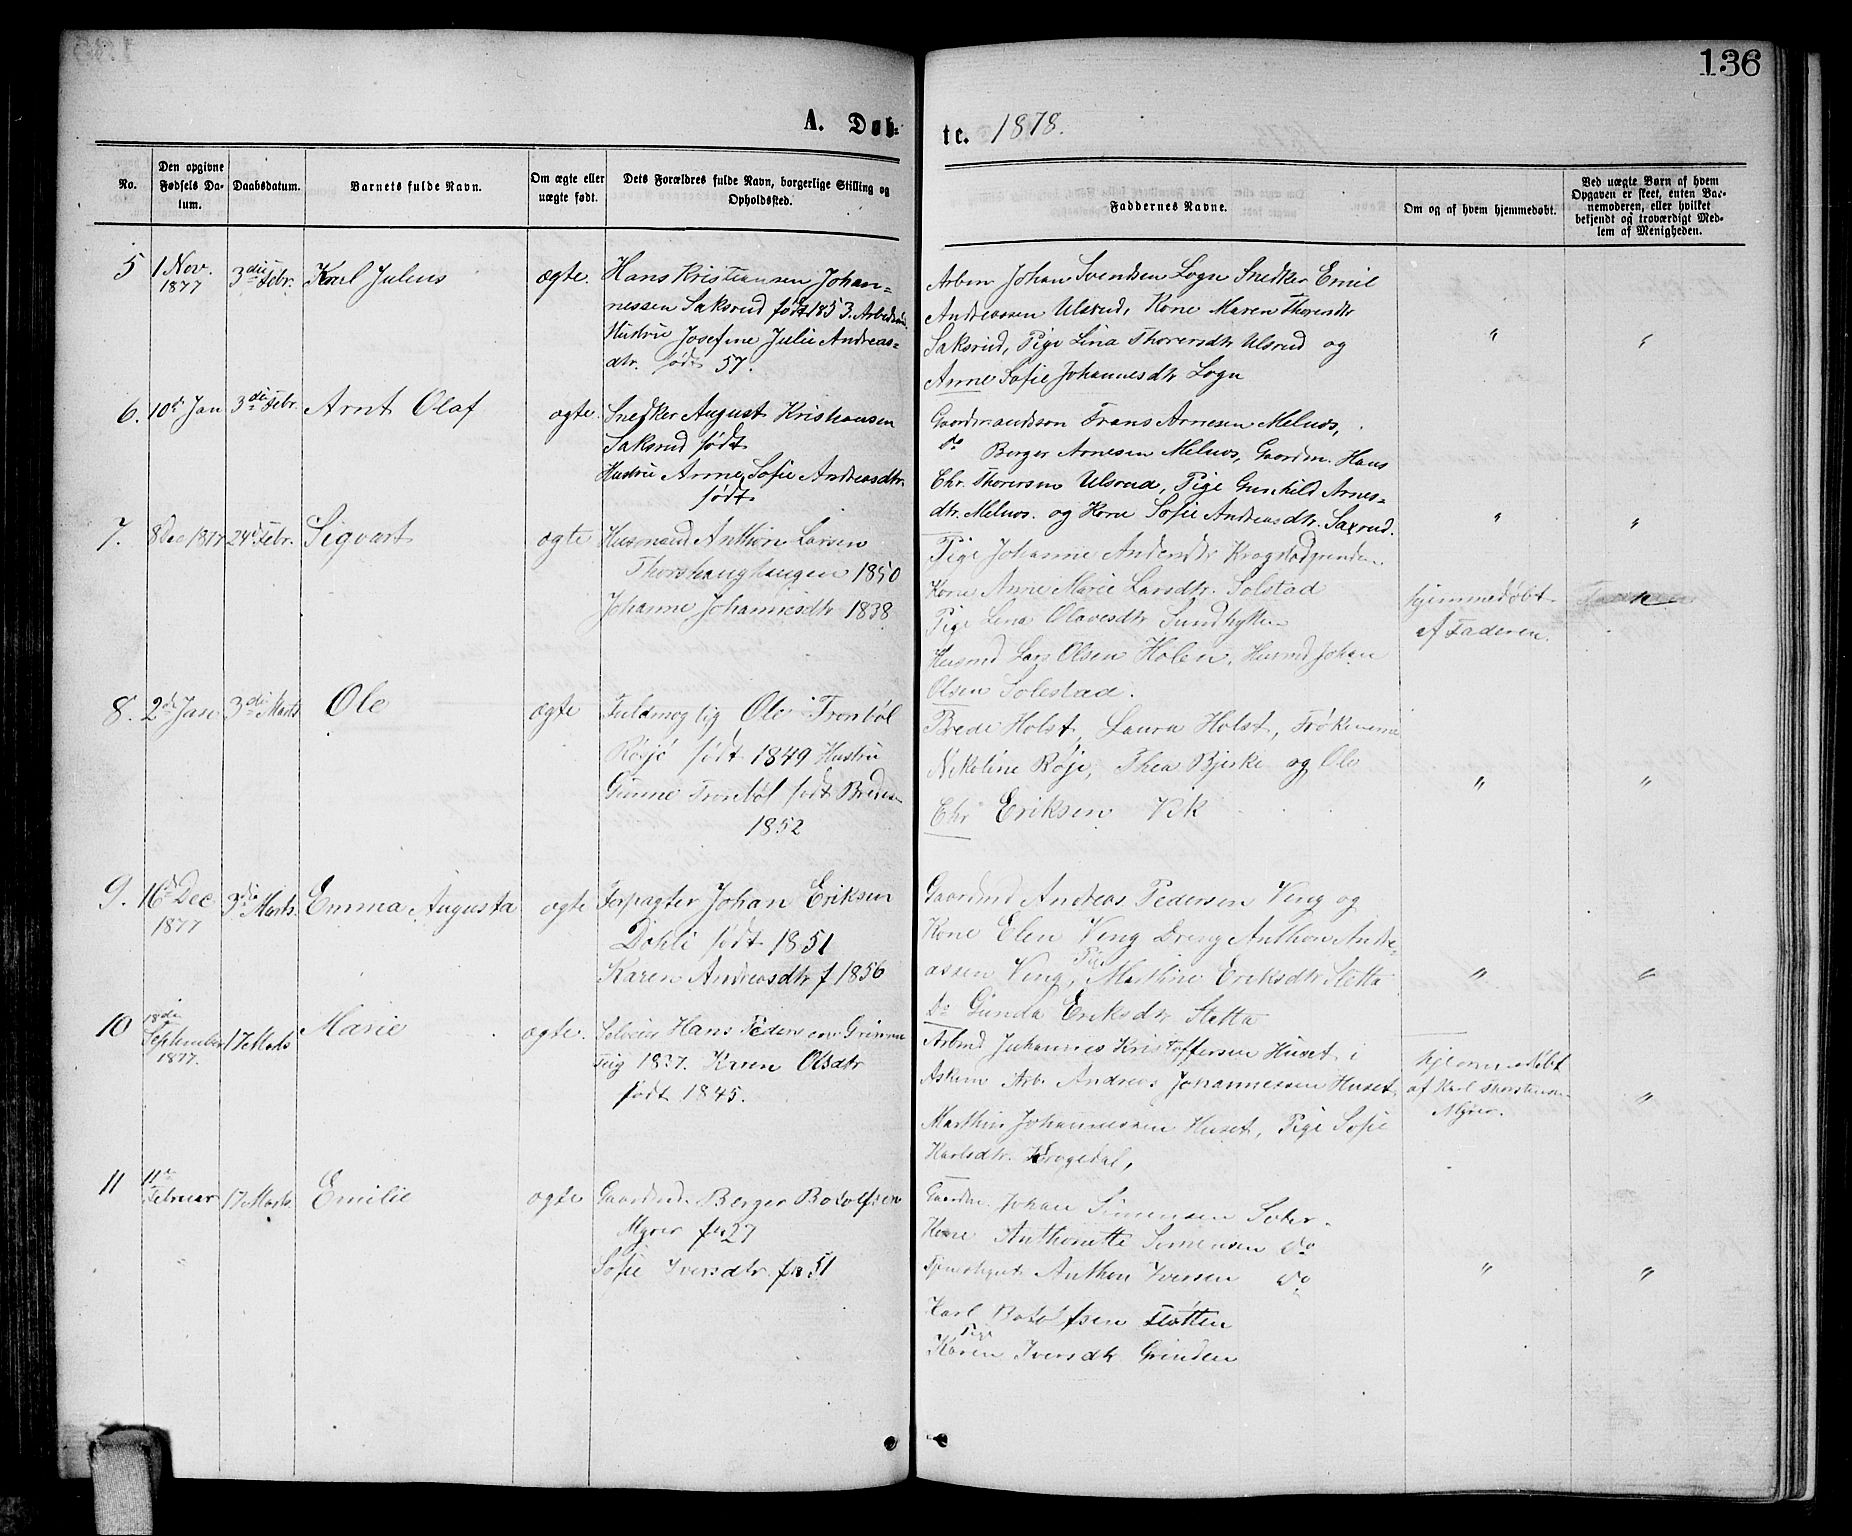 136
A. Døb-
te. 1878.
No.
Den opgivne Fødsels Datum.
Daabsdatum.
Barnets fulde Navn.
Om ægte eller uægte født.
Dets Forældres fulde Navn, borgerlige Stilling og Opholdssted.
Faddernes Navne.
Om og af hvem hjemmedøbt.
Ved uægte Børn af hvem Opgaven er skeet, enten Barnemoderen, eller hvilket bekjendt og troværdigt Medlem af Menigheden.
5
1 Nov. 1877
3die Febr.
Karl Julius
ægte.
Hans Kristiansen Johan-
nessen Saksrud født 1853. Arbeids
Hustru Josefine Julie Andreas-
dtr. født 57.
Arbm. Johan Svendsen Logn Snedker Emil
Andreassen Ulsrud, Kone Maren Thorersdtr
Saksrud, Pige Lina Thorersdtr Ulsrud og
Anne Sofie Johannesdtr Logn
"
"
6.
10d Jan
3die Febr.
Arnt Olaf
ægte.
Snedker August Kristiansen
Saksrud født
Hustru Anne Sofie Andreasdtr.
født
Gaardmandssøn Frans Arnesen Melnos,
do Borger Arnesen Melnos, Gaardm. Hans
Chr. Thorersen Ulsrud, Pige Gunhild Arnes-
dtr. Melnos. og Kone Sofie Andreasdtr. Saxrud.
"
"
7.
8 Dec 1877
24d Febr.
Sigvart
ægte
Husmand Anthon Larsen
Thorshaughaugen 1850
Johanne Johannesdtr 1838
Pige Johanne Andersdtr Kragstadgrenden
Kone Anne Marie Larsdtr. Solstad
Pige Lena Olavesdtr Sundhytten
Husmd Lars Olsen Holen, Husmd Johan
Olsen Solestad.
hjemmedøbt
af Faderen.
8.
2d Jan
3die Marts
Ole
ægte
Fuldmægtig Ole Tronbøl
Røjo født 1849 Hustru
Gunne Tronbøl født Bredesen
1852
Brede Holst, Laura Holst, Frøknerne
Nikoline Røje, Thea Bjerke og Ole
Chr Eriksen Vik
"
"
9.
16d Dec 1877
3die Marts.
Emma Augusta
ægte
Forpagter Johan Eriksen
Dohli født 1851
Karen Andreasdtr f 1856
Gaardmd Andreas Pedersen Ving og
Kone Elen Ving Dreng Anthon Andre-
assen Ving, Pige Marthine Eriksdtr Sletta
Do Gunda Eriksdtr Sletta
"
"
10
18de September 1877.
17 Marts
Marie
ægte.
Selveier Hans Pedersen Grimme-
teig 1837. Karen Olsdtr
født 1845.
Arbmd Johannes Kristoffersen Huset i
Askim Arb. Andreas Johannessen Huset,
Marthin Johannessen Huset, Pige Sofie
Karlsdtr. Krogedal,
hjemmedøbt
af Karl Thorstensen
Myrer.
"
11
11te Februar
17 Marts.
Emilie
ægte
Gaardmd. Borger Botolfsen
Myrer fr 27
Sofie Iversdtr. fr 51
Gaardm. Johan Simensen Seter.
Kone Anthonette Simensen do
Tjenestegut Anthon Iversen do
Karl Botolfsen Fløtten
Pige Karen Iversdtr. Grinden
"
"